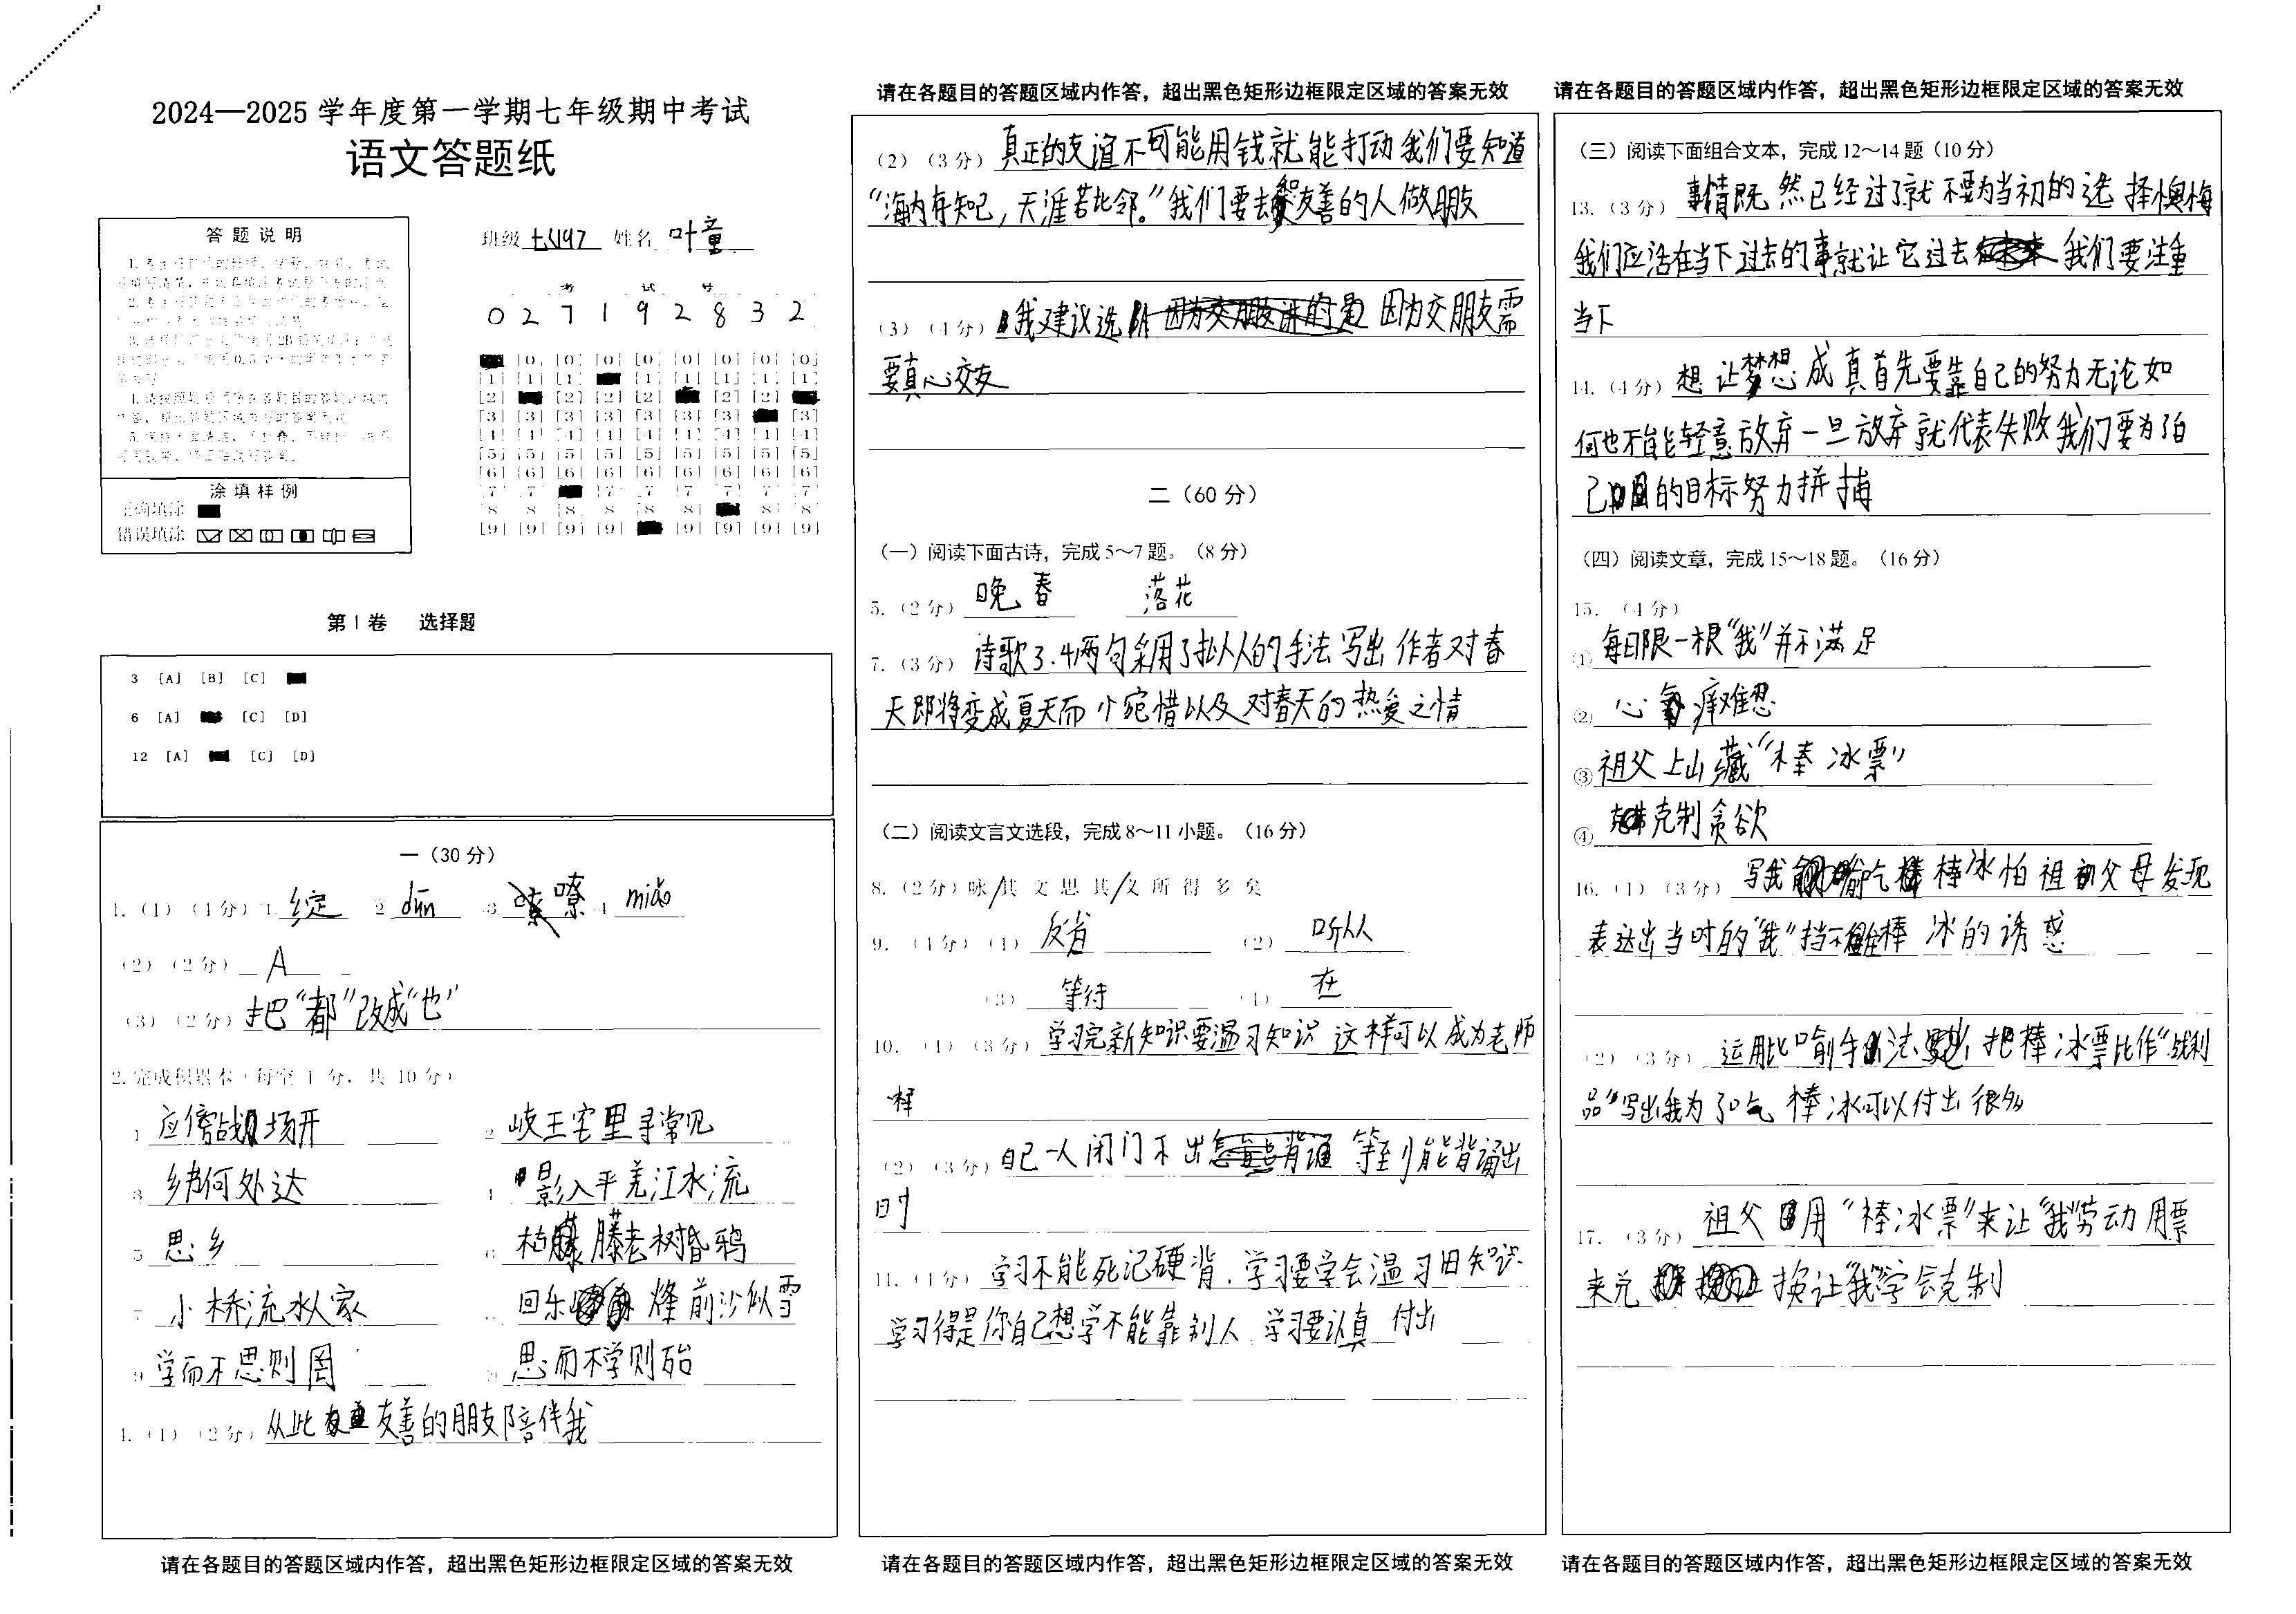 2024—2025 学年度第一学期七年级期中考试
语文答题纸
答 题 说 明
涂 填 样 例
正确填涂
错误填涂
班级 七(19) 姓名 叶童
考 试 号
0 2 7 1 9 2 8 3 2
[0] [0] [0] [0] [0] [0] [0] [0]
[1] [1] [1] [1] [1] [1] [1] [1]
[2] [2] [2] [2] [2] [2]
[3] [3] [3] [3] [3] [3] [3] [3]
[4] [4] [4] [4] [4] [4] [4] [4] [4]
[5] [5] [5] [5] [5] [5] [5] [5] [5]
[6] [6] [6] [6] [6] [6] [6] [6] [6]
[7] [7] [7] [7] [7] [7] [7] [7]
[8] [8] [8] [8] [8] [8] [8] [8]
[9] [9] [9] [9] [9] [9] [9] [9]
第 I 卷 选择题
3 [A] [B] [C]
6 [A] [C] [D]
12 [A] [C] [D]
一（30 分）
1.（1）（4分）1. 绽 2. dūn 3. 嘹 4. miǎo
（2）（2分） A
（3）（2分）把“都”改成“也”
2.完成积累本（每空 1 分，共 10 分）
1 应傍战场开 2 岐王宅里寻常见
3 乡书何处达 4 影入平羌江水流
5 思乡 6 枯藤老树昏鸦
7 小桥流水人家 8 回乐烽前沙似雪
9 学而不思则罔 10 思而不学则殆
4.（1）（2分）从此友善的朋友陪伴我
请在各题目的答题区域内作答，超出黑色矩形边框限定区域的答案无效
请在各题目的答题区域内作答，超出黑色矩形边框限定区域的答案无效
（2）（3分）真正的友谊不可能用钱就能打动我们要知道
“海内存知己，天涯若比邻。”我们要去和友善的人做朋友
（3）（4分）我建议选 因为交朋友需
要真心交友
二（60 分）
（一）阅读下面古诗，完成 5～7 题。（8 分）
5.（2分） 晚春 落花
7.（3分） 诗歌3.4两句采用了拟人的手法写出作者对春
天即将变成夏天而 惋惜以及对春天的热爱之情
（二）阅读文言文选段，完成 8～11 小题。（16 分）
8.（2分）咏/其 文 思 其/义 所 得 多 矣
9.（4分）（1） 反省 （2） 听从
（3） 等待 （4） 在
10.（1）（3分）学习完新知识要温习知识 这样可以成为老师
样
（2）（3分）自己一人闭门不出 等到能背诵出
时
11.（4分） 学习不能死记硬背，学习要学会温习旧知识
学习得是你自己想学不能靠别人 学习要认真 付出
请在各题目的答题区域内作答，超出黑色矩形边框限定区域的答案无效
请在各题目的答题区域内作答，超出黑色矩形边框限定区域的答案无效
（三）阅读下面组合文本，完成 12～14 题（10 分）
13.（3分） 事情既然已经过了就不要为当初的选择懊悔
我们应活在当下过去的事就让它过去 我们要注重
当下
14.（4分） 想让梦想成真首先要靠自己的努力无论如
何也不能轻意放弃一旦放弃就代表失败我们要为自
己的目标努力拼搏
（四）阅读文章，完成 15～18 题。（16 分）
15.（4分）
① 每日限一根“我”并不满足
② 心痒难忍
③ 祖父上山藏“棒冰票”
④ 克制贪欲
16.（1）（3分） 写我偷吃棒冰怕祖父母发现
表达出当时的“我”挡不住棒冰的诱惑
（2）（3分） 运用比喻手法 把棒冰票比作“战利
品”写出我为了吃棒冰可以付出很多
17.（3分） 祖父用“棒冰票”来让“我”劳动用票
来兑换让“我”学会克制
请在各题目的答题区域内作答，超出黑色矩形边框限定区域的答案无效